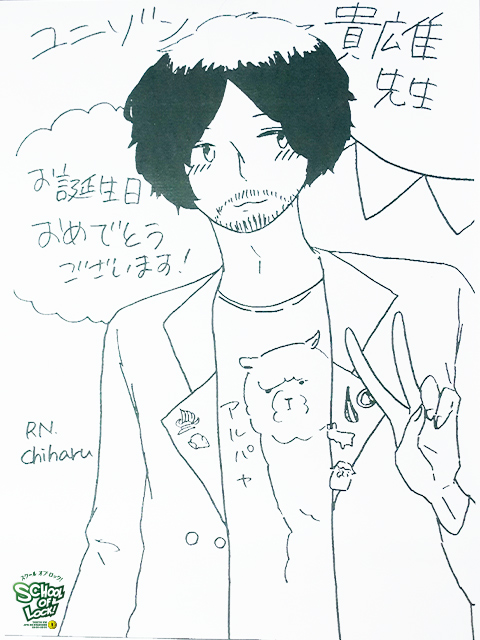 ユニゾン
貴雄
先生
お誕生日
おめでとう
ございます!
アルパカ
RN.
chiharu
スクール オブ ロック!
SCHOOL
OF
LOCK!